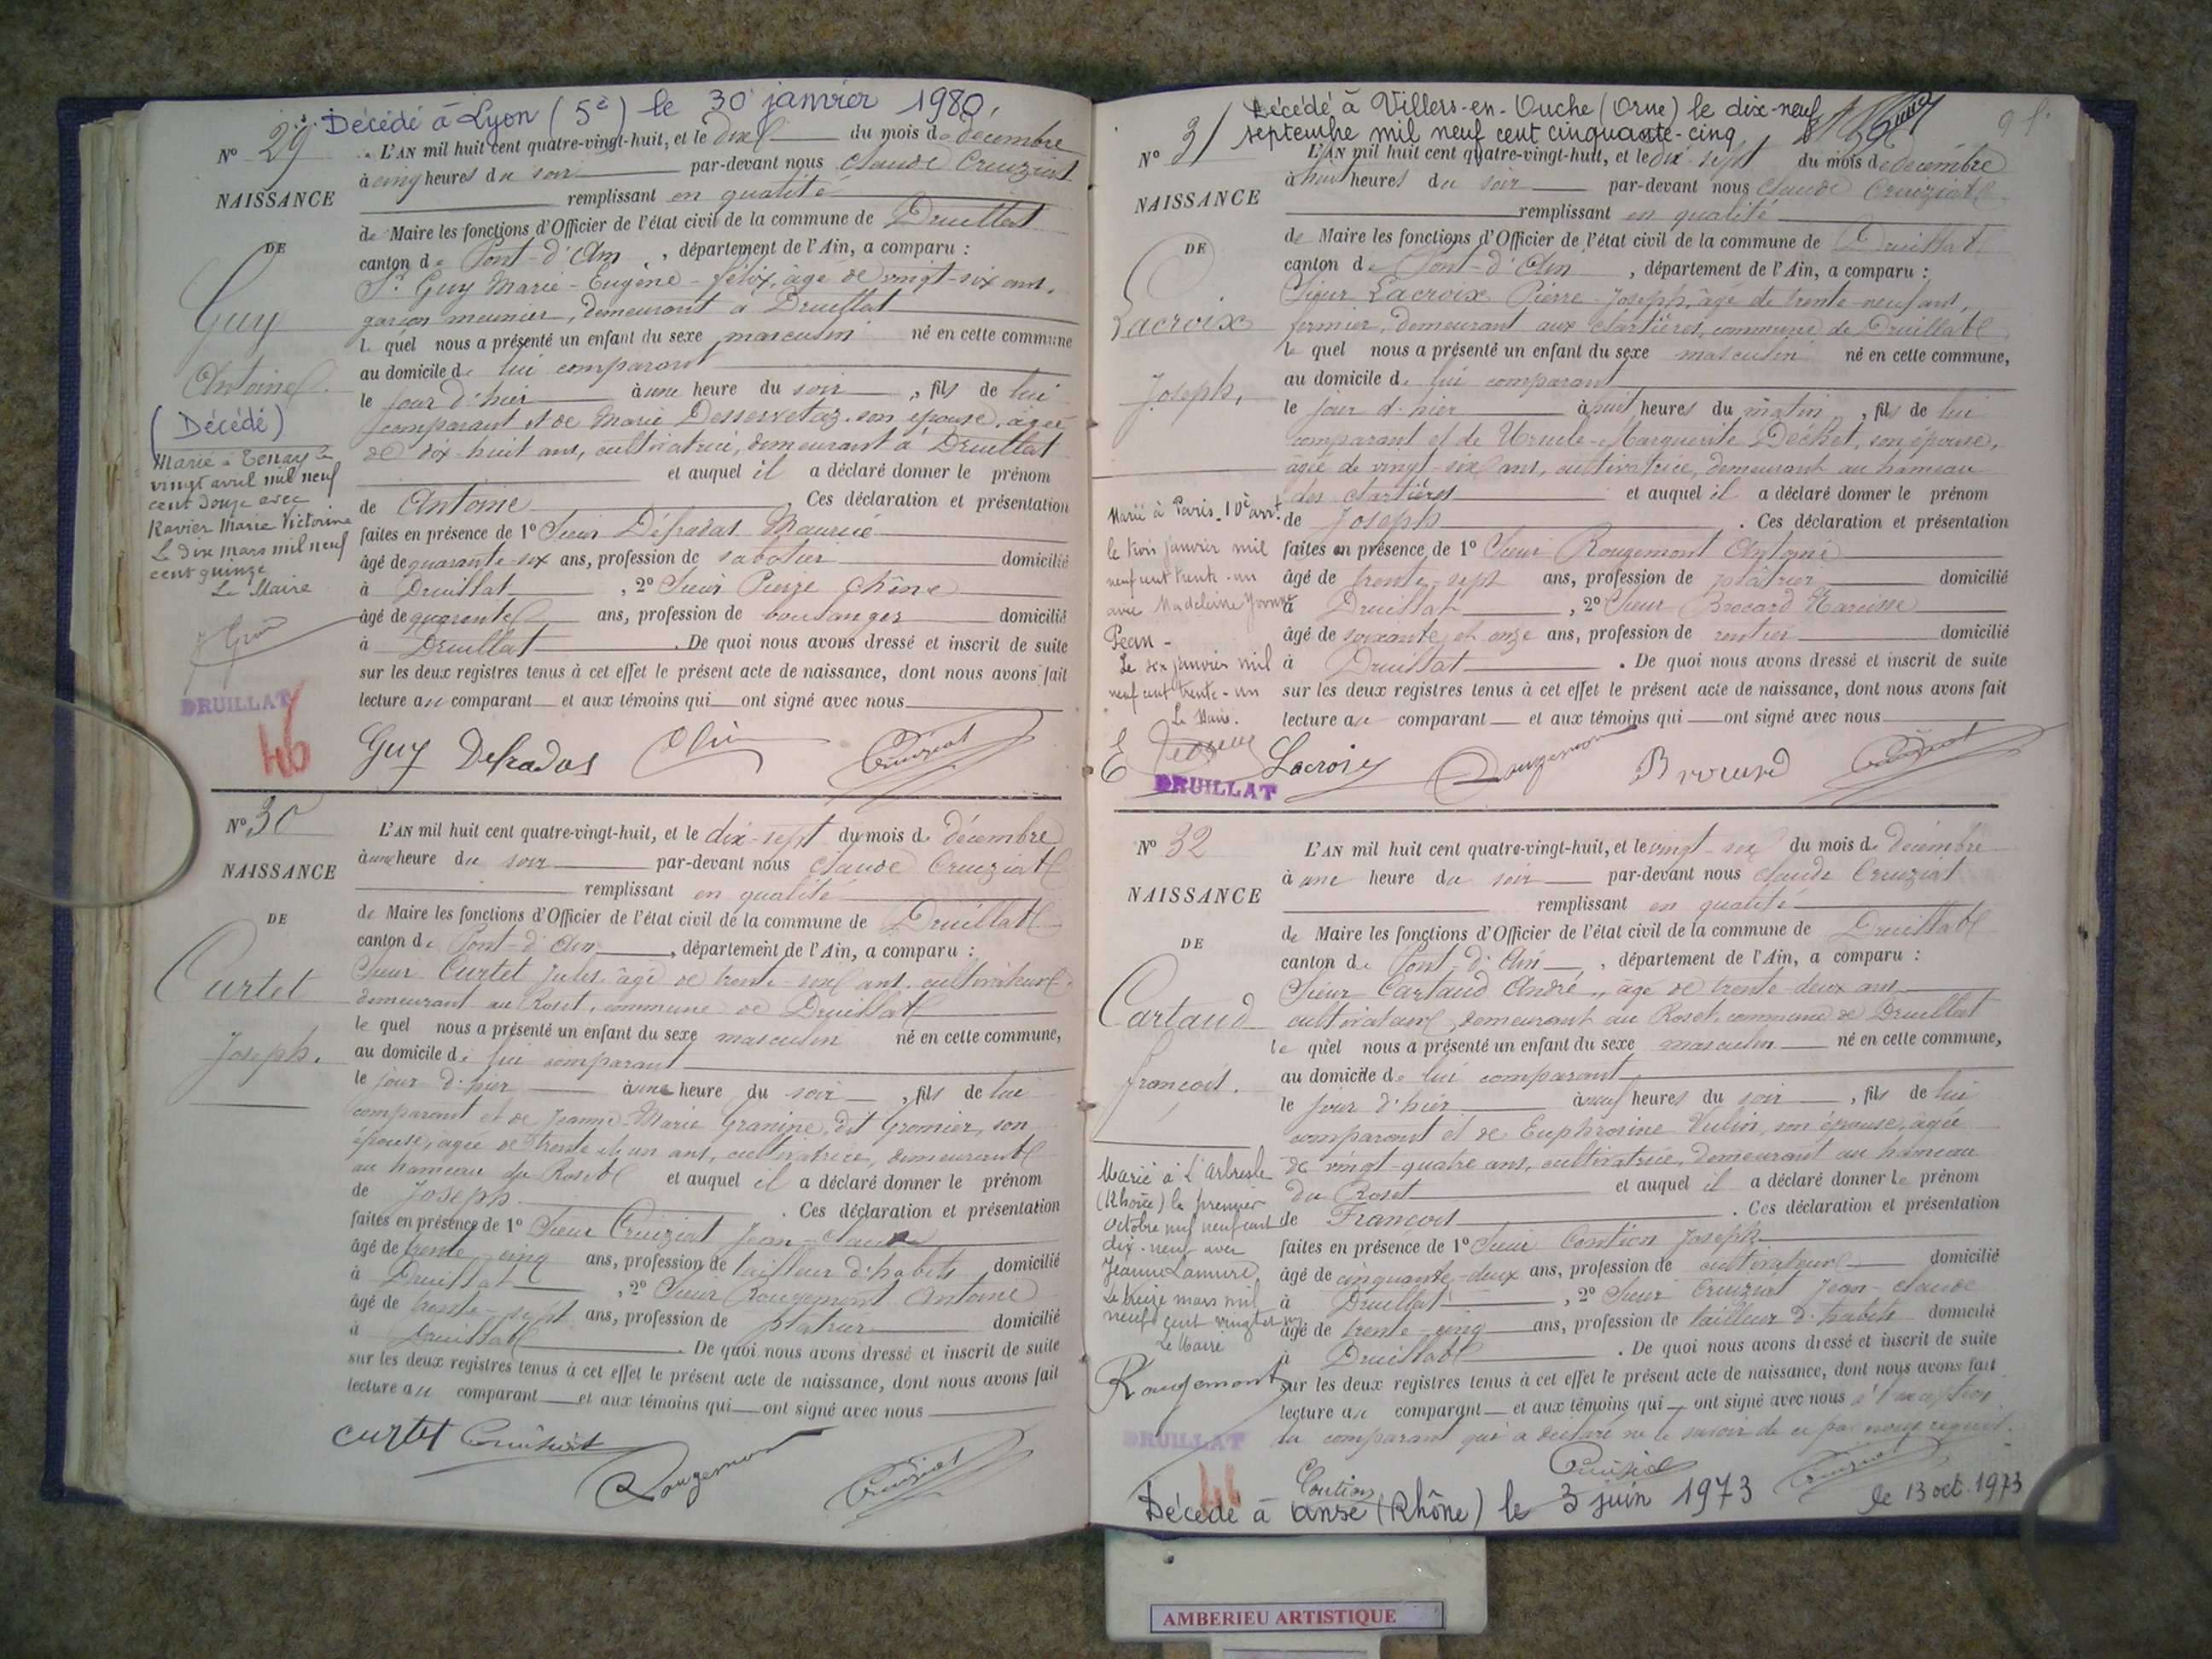 Décédé à Lyon (5e) le 30 janvier 1980.
N° 29
L'AN mil huit cent quatre-vingt-huit, et le dix du mois de décembre
à cinq heures du soir par-devant nous Claude Cruiziat
NAISSANCE
remplissant en qualité
de Maire les fonctions d'Officier de l'état civil de la commune de Druillat
DE
canton de Pont-d'Ain, département de l'Ain, a comparu :
Sr Guy Marie-Eugène-Félix, âgé de vingt-six ans,
Guy
garçon meunier, demeurant à Druillat
lequel nous a présenté un enfant du sexe masculin né en cette commune
Antoine
au domicile de lui comparant
le jour d'hier à une heure du soir, fils de lui
comparant et de Marie Desservetaz son épouse, âgée
de dix-huit ans, cultivatrice, demeurant à Druillat
et auquel il a déclaré donner le prénom
de Antoine. Ces déclaration et présentation
faites en présence de 1° Sieur Défradas Maurice
âgé de quarante-six ans, profession de sabotier domicilié
à Druillat, 2° Sieur Pierre Chêne
âgé de quarante ans, profession de boulanger domicilié
à Druillat. De quoi nous avons dressé et inscrit de suite
sur les deux registres tenus à cet effet le présent acte de naissance, dont nous avons fait
lecture au comparant et aux témoins qui ont signé avec nous
(Décédé)
Marié à Tenay le
vingt avril mil neuf
cent douze avec
Ravier Marie Victorine
Le dix mars mil neuf
cent quinze
Le Maire
DRUILLAT
46
Guy Defradas Cruiziat
N° 30
L'AN mil huit cent quatre-vingt-huit, et le dix-sept du mois de décembre
à une heure du soir par-devant nous Claude Cruiziat
NAISSANCE
remplissant en qualité
DE
de Maire les fonctions d'Officier de l'état civil de la commune de Druillat
canton de Pont-d'Ain, département de l'Ain, a comparu :
Sieur Curtet Jules, âgé de trente-six ans, cultivateur,
Curtet
demeurant au Roset, commune de Druillat
lequel nous a présenté un enfant du sexe masculin né en cette commune,
Joseph.
au domicile de lui comparant
le jour d'hier à une heure du soir, fils de lui
comparant et de Jeanne-Marie Granine, dit Gromier, son
épouse, âgée de trente et un ans, cultivatrice, demeurant
au hameau du Roset et auquel il a déclaré donner le prénom
de Joseph. Ces déclaration et présentation
faites en présence de 1° Sieur Cruiziat Jean-Claude
âgé de trente-cinq ans, profession de tailleur d'habits domicilié
à Druillat, 2° Sieur Rougemont Antoine
âgé de trente-sept ans, profession de plâtrier domicilié
à Druillat. De quoi nous avons dressé et inscrit de suite
sur les deux registres tenus à cet effet le présent acte de naissance, dont nous avons fait
lecture au comparant et aux témoins qui ont signé avec nous
Curtet Cruiziat
Rougemont Cruiziat
Décédé à Villers-en-Ouche (Orne) le dix-neuf
septembre mil neuf cent cinquante-cinq
N° 31
L'AN mil huit cent quatre-vingt-huit, et le dix-sept du mois de décembre
à huit heures du soir par-devant nous Claude Cruiziat
NAISSANCE
remplissant en qualité
de Maire les fonctions d'Officier de l'état civil de la commune de Druillat
DE
canton de Pont-d'Ain, département de l'Ain, a comparu :
Sieur Lacroix Pierre-Joseph, âgé de trente-neuf ans,
Lacroix
fermier, demeurant aux Clartières, commune de Druillat
lequel nous a présenté un enfant du sexe masculin né en cette commune,
Joseph,
au domicile de lui comparant
le jour d'hier à huit heures du matin, fils de lui
comparant et de Ursule-Marguerite Déchet, son épouse,
âgée de vingt-six ans, cultivatrice, demeurant au hameau
des Clartières et auquel il a déclaré donner le prénom
de Joseph. Ces déclaration et présentation
faites en présence de 1° Sieur Rougemont Antoine
âgé de trente-sept ans, profession de plâtrier domicilié
à Druillat, 2° Sieur Brocard Narcisse
âgé de soixante et onze ans, profession de rentier domicilié
à Druillat. De quoi nous avons dressé et inscrit de suite
sur les deux registres tenus à cet effet le présent acte de naissance, dont nous avons fait
lecture au comparant et aux témoins qui ont signé avec nous
Marié à Paris_10e arrt
le trois janvier mil
neuf cent trente-un
avec Madeleine Yvonne
Pean -
Le six janvier mil
neuf cent trente-un
Le Maire.
DRUILLAT
Lacroix Rougemont Brocard Cruiziat
N° 32
L'AN mil huit cent quatre-vingt-huit, et le vingt-six du mois de décembre
à une heure du soir par-devant nous Claude Cruiziat
NAISSANCE
remplissant en qualité
DE
de Maire les fonctions d'Officier de l'état civil de la commune de Druillat
canton de Pont-d'Ain, département de l'Ain, a comparu :
Sieur Cartaud André, âgé de trente-deux ans
Cartaud
cultivateur demeurant au Roset, commune de Druillat
lequel nous a présenté un enfant du sexe masculin né en cette commune,
François.
au domicile de lui comparant
le jour d'hier à neuf heures du soir, fils de lui
comparant et de Euphrosine Vulin, son épouse, âgée
de vingt-quatre ans, cultivatrice, demeurant au hameau
du Roset et auquel il a déclaré donner le prénom
de François. Ces déclaration et présentation
faites en présence de 1° Sieur Coution Joseph
âgé de cinquante-deux ans, profession de cultivateur domicilié
à Druillat, 2° Sieur Cruiziat Jean-Claude
âgé de trente-cinq ans, profession de tailleur d'habits domicilié
à Druillat. De quoi nous avons dressé et inscrit de suite
sur les deux registres tenus à cet effet le présent acte de naissance, dont nous avons fait
lecture au comparant et aux témoins qui ont signé avec nous à l'exception
du comparant qui a déclaré ne le savoir de ce par nous requis.
Marié à L'Arbresle
(Rhône) le premier
octobre mil neuf cent
dix-neuf avec
Jeanne Lamure
Le treize mars mil
neuf cent vingt et un
Le Maire
Rougemont
DRUILLAT
46
Coution Cruiziat Cruiziat
Décédé à Anse (Rhône) le 3 juin 1973
le 13 oct. 1973
AMBERIEU ARTISTIQUE